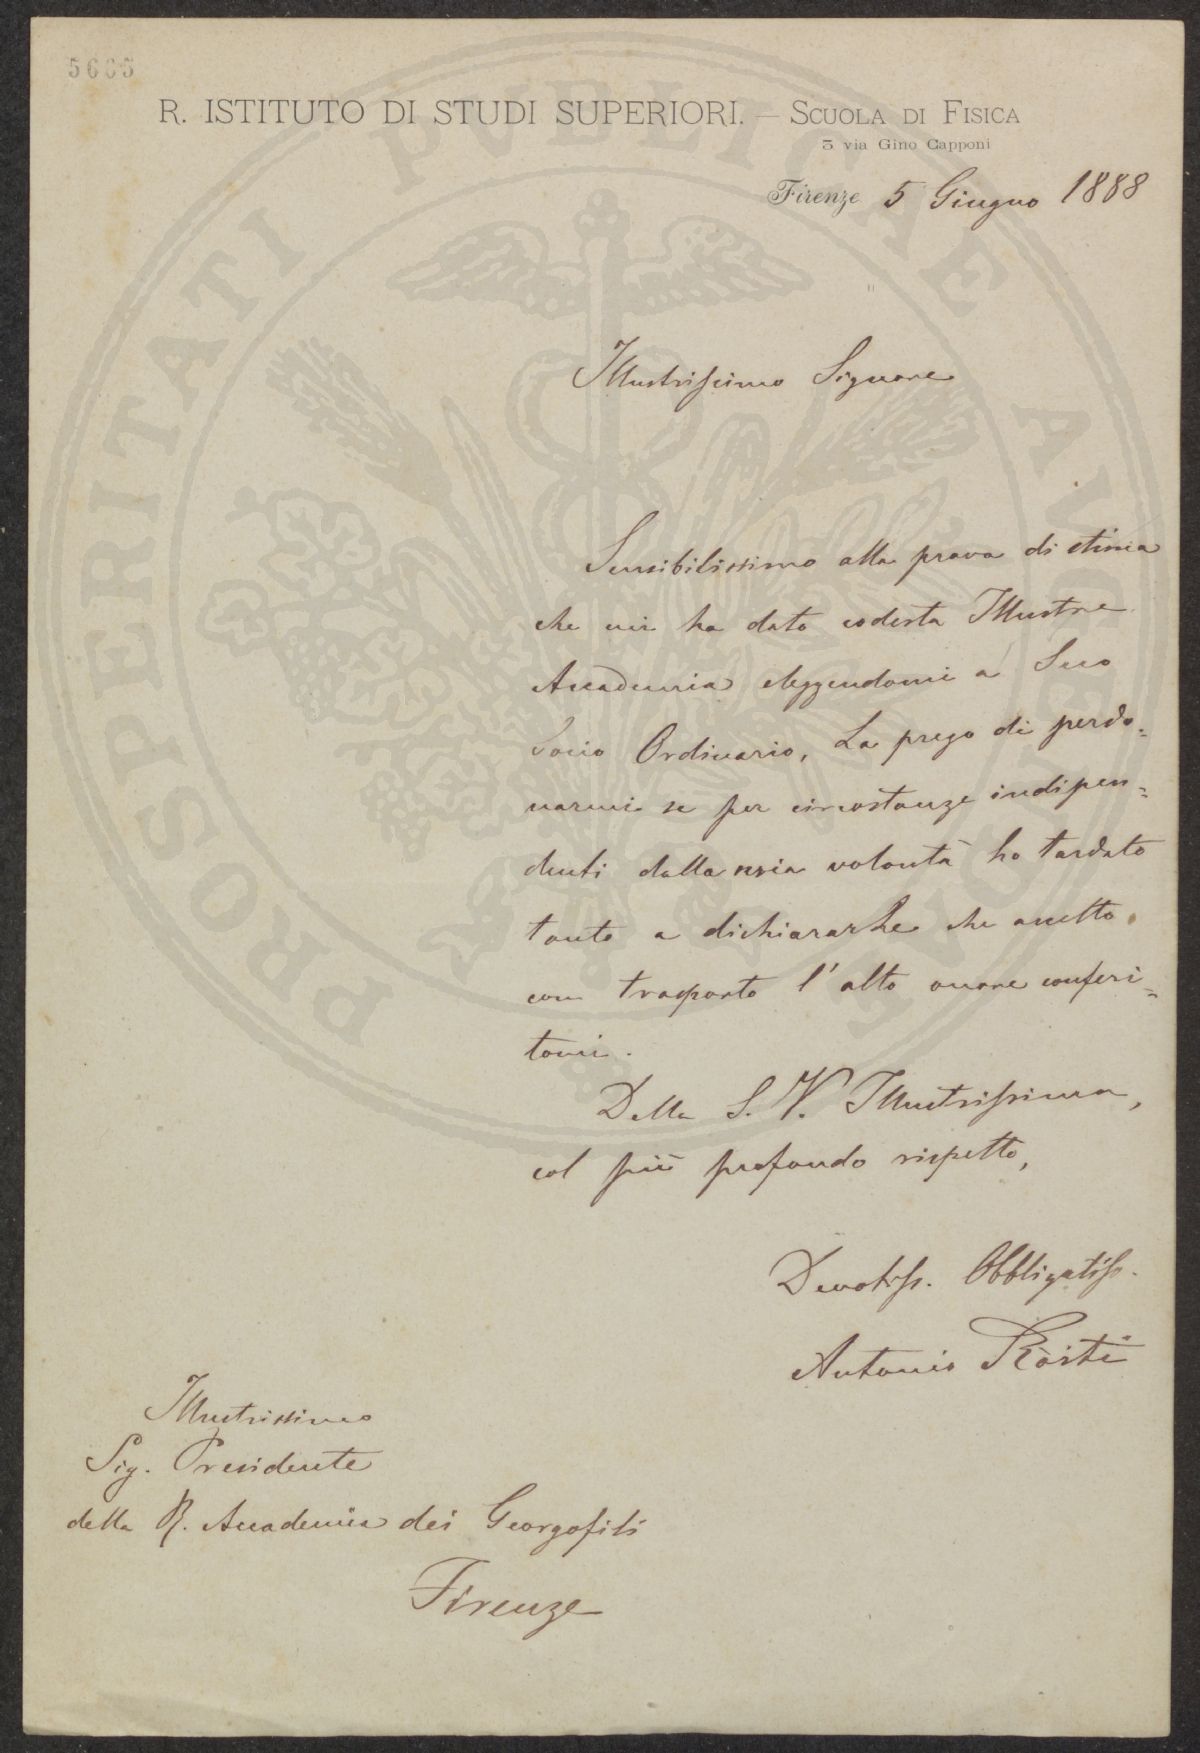 5665
R. ISTITUTO DI STUDI SUPERIORI. — SCUOLA DI FISICA
3 via Gino Capponi
Firenze 5 Giugno 1888
Illustrissimo Signore
Sensibilissimo alla prova di stima
che mi ha dato codesta Illustre
Accademia eleggendomi a Suo
Socio Ordinario, La prego di perdo=
narmi se per circostanze indipen=
denti dalla mia volontà ho tardato
tanto a dichiararLe che accetto
con trasporto l'alto onore conferi=
tomi.
Della S. V. Illustrissima,
col più profondo rispetto,
Devotiss. Obbligatiss.
Antonio Ròiti
Illustrissimo
Sig. Presidente
della R. Accademia dei Georgofili
Firenze
PROSPERITATI PVBLICAE AVGENDAE